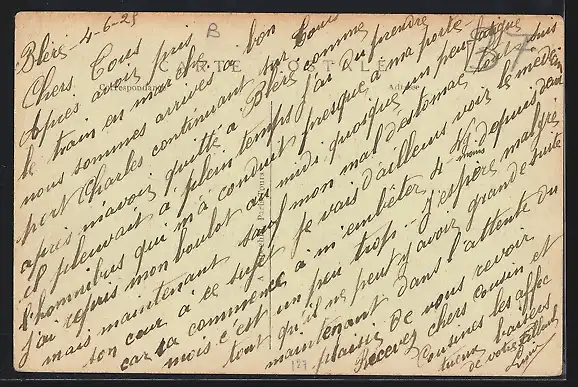 Bléré - 4-6-25
Chers Tous
Après avoir pris
le train en marche
nous sommes arrivés à bon
port Charles continuant sur Tours
après m'avoir quitté à Bléré comme
il pleuvait à plein temps j'ai du prendre
l'homnibus qui m'a conduit presque à ma porte -
j'ai repris mon boulot au midi quoique un peu fatiguée
mais maintenant sauf mon mal d'estomac tout suis
son cour à ce sujet je vais d'ailleurs voir le médecin
car ça commence à m'embêter 4 ½ depuis deux
mois c'est un peu trop - J'espère malgré
tout qu'il ne peut y avoir grande suite
maintenant dans l'attente du
plaisir de vous revoir
Recevez chers cousin et
Cousines les affec
tueux baisers
de votre
CARTE POSTALE
Correspondance
Adresse
B
127